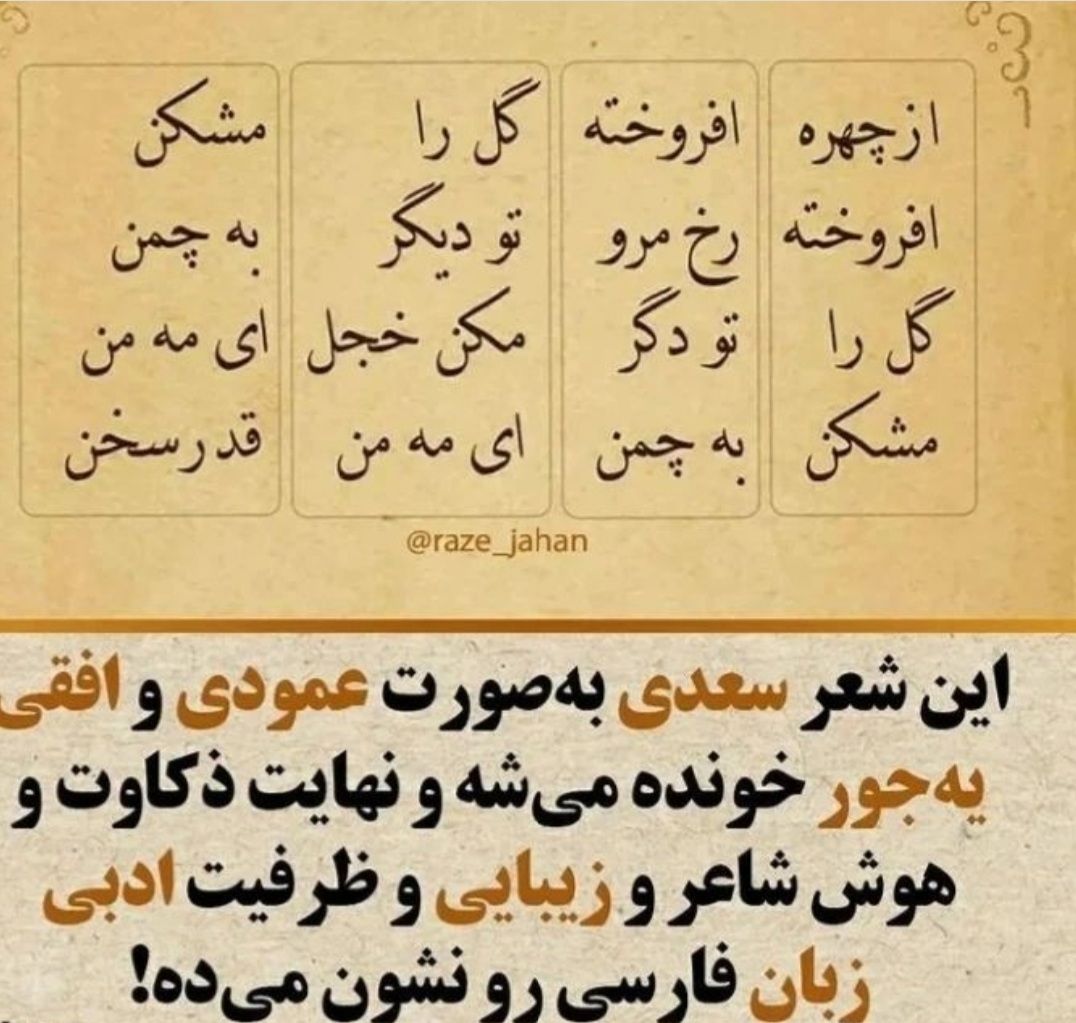 از چهره افروخته گل را مشکن
افروخته رخ مرو تو دیگر به چمن
گل را تو دگر مکن خجل ای مه من
مشکن به چمن ای مه من قدر سخن
@raze_jahan
این شعر سعدی به‌صورت عمودی و افقی
یه‌جور خونده می‌شه و نهایت ذکاوت و
هوش شاعر و زیبایی و ظرفیت ادبی
زبان فارسی رو نشون می‌ده!